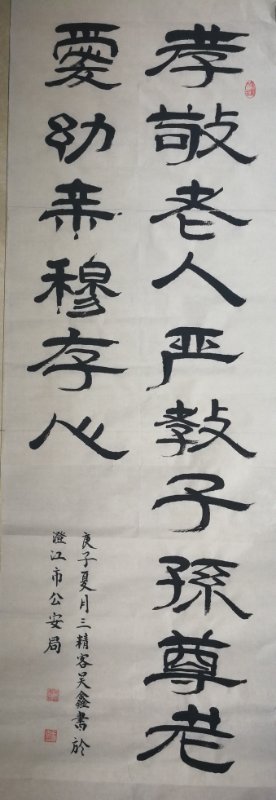 孝敬老人严教子孫尊老
愛幼亲穆存心
庚子夏月三精客吴鑫書於
澄江市公安局